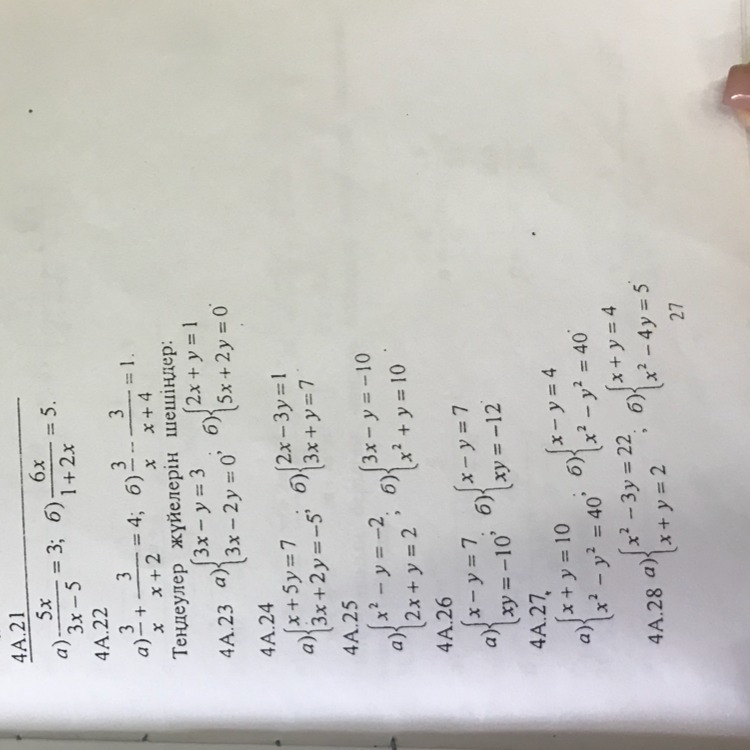 4A.21
а) 5x/(3x − 5) = 3; б) 6x/(1 + 2x) = 5.
4A.22
а) 3/x + 3/(x + 2) = 4; б) 3/x − 3/(x + 4) = 1.
Теңдеулер жүйелерін шешіңдер:
4A.23 а) {3x − y = 3; 3x − 2y = 0; б) {2x + y = 1; 5x + 2y = 0.
4A.24
а) {x + 5y = 7; 3x + 2y = −5; б) {2x − 3y = 1; 3x + y = 7.
4A.25
а) {x² − y = −2; 2x + y = 2; б) {3x − y = −10; x² + y = 10.
4A.26
а) {x − y = 7; xy = −10; б) {x − y = 7; xy = −12.
4A.27.
а) {x + y = 10; x² − y² = 40; б) {x − y = 4; x² − y² = 40.
4A.28 а) {x² − 3y = 22; x + y = 2; б) {x + y = 4; x² − 4y = 5.
27